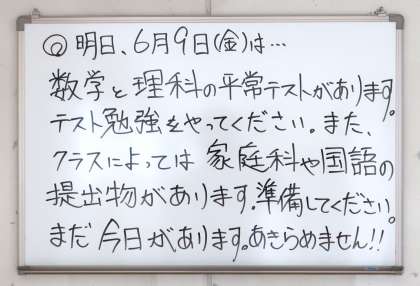 ◎明日、6月9日(金)は…
数学と理科の平常テストがあります。
テスト勉強をやってください。また、
クラスによっては家庭科や国語の
提出物があります。準備してください。
まだ今日があります。あきらめません!!